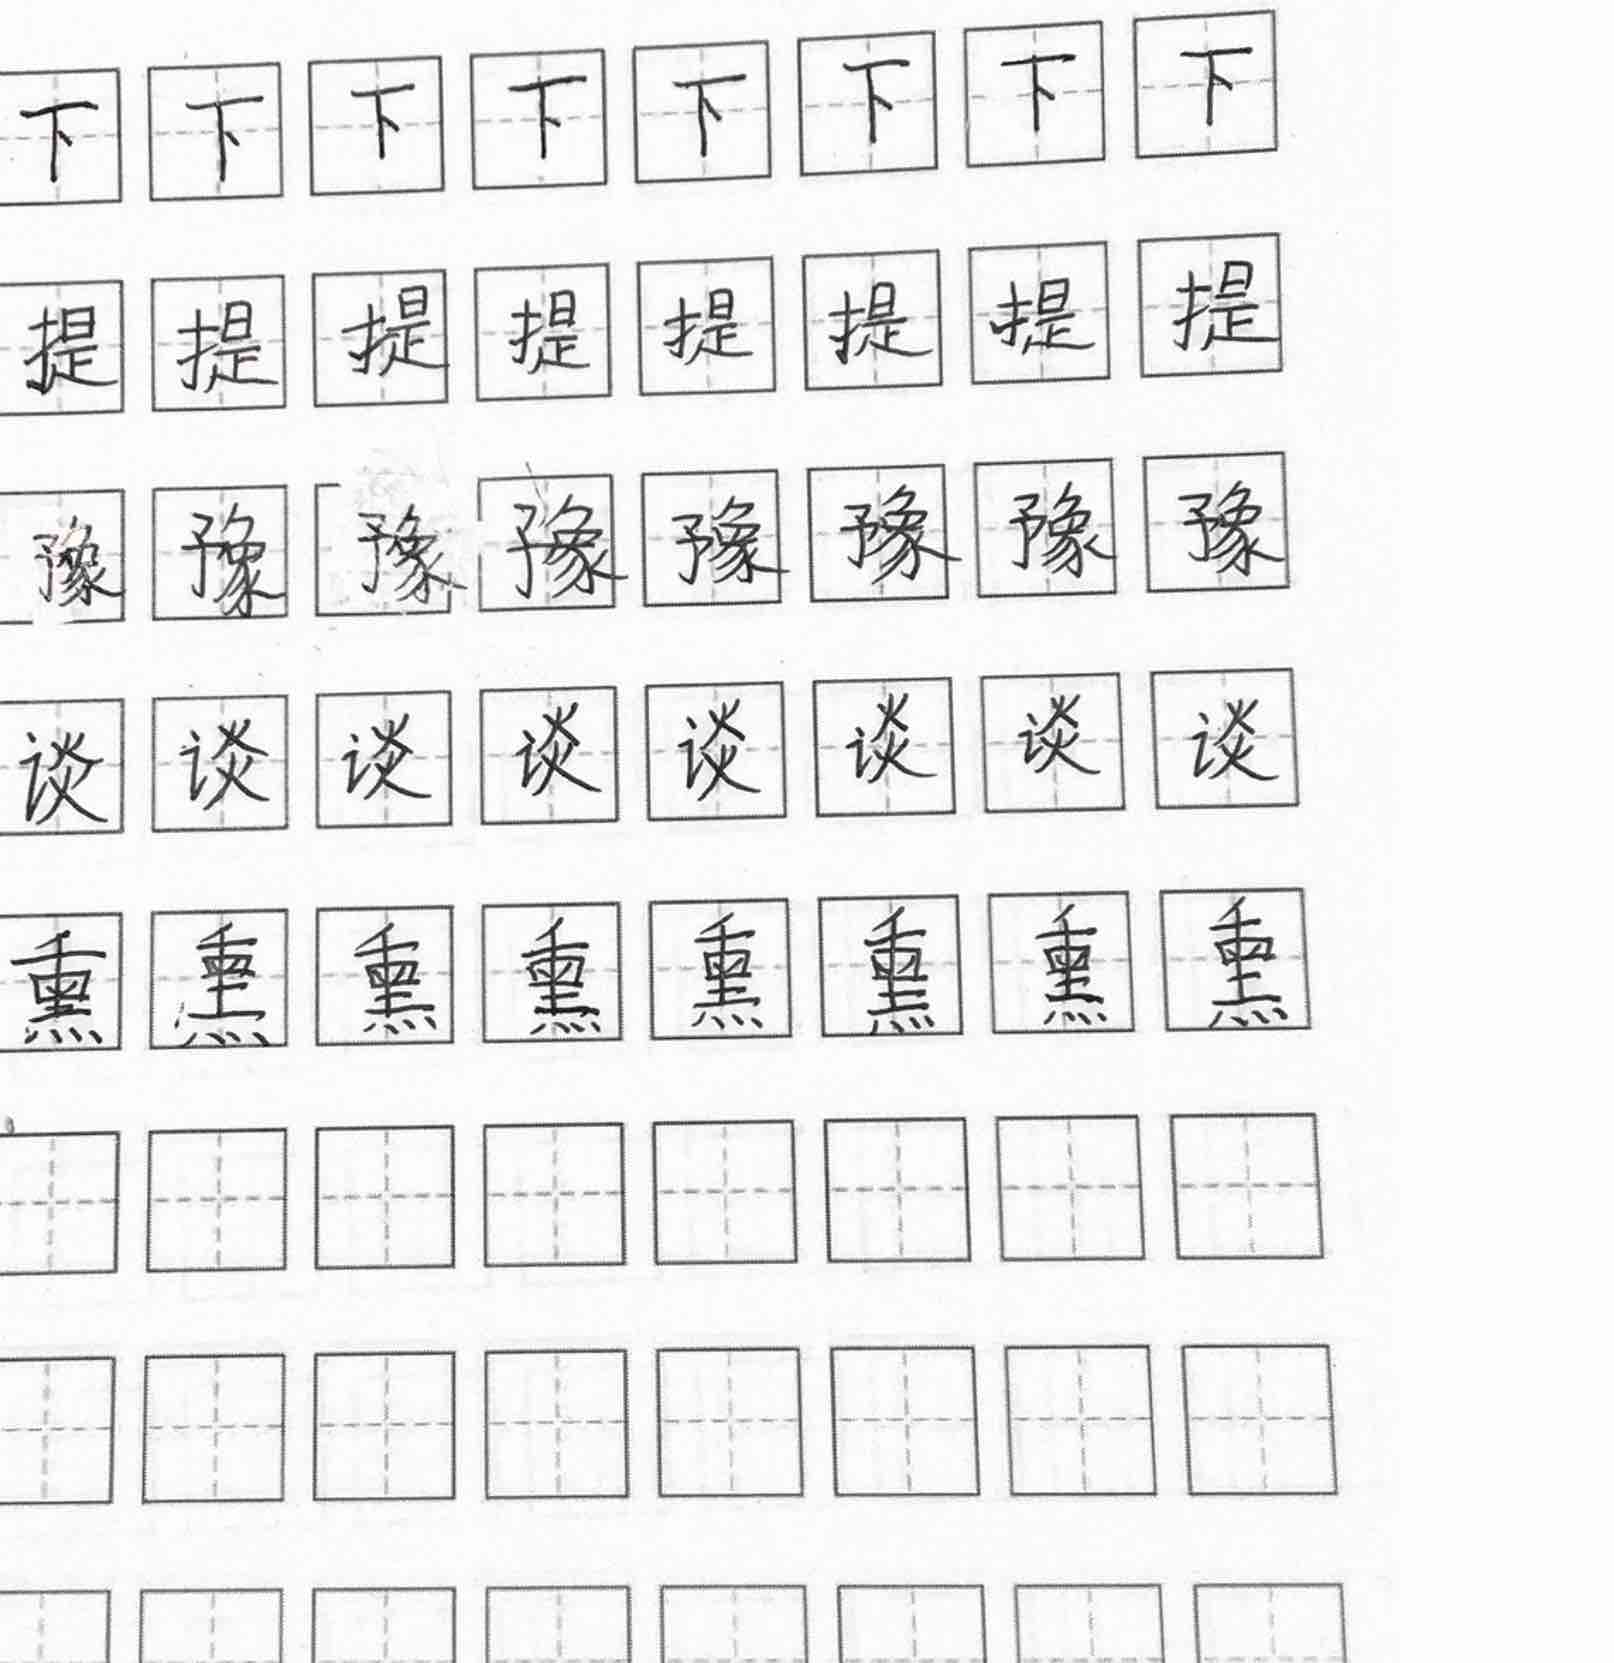 下下下下下下下下
提提提提提提提提
豫豫豫豫豫豫豫豫
谈谈谈谈谈谈谈谈
熏熏熏熏熏熏熏熏